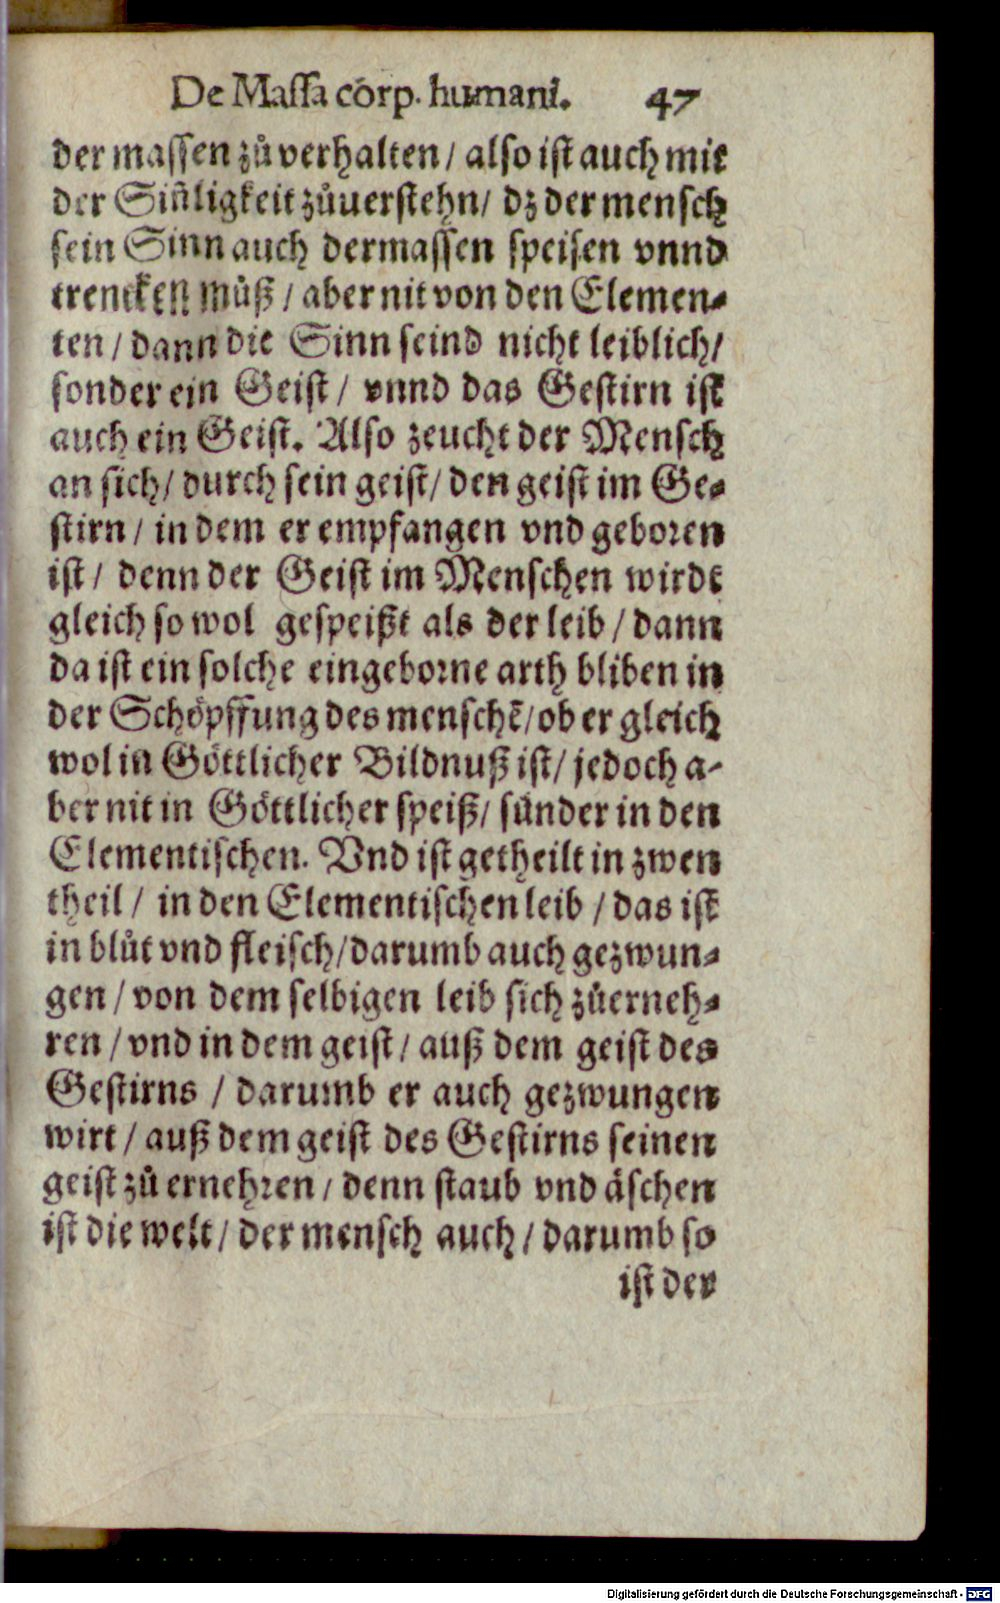 De Maſſa corp. humani. 47
der maſſen zů verhalten / alſo iſt auch mit
der Siñligkeit zůuerſtehn / dz der menſch
ſein Sinn auch dermaſſen ſpeiſen vnnd
trencken můß / aber nit von den Elemen⸗
ten / dann die Sinn ſeind nicht leiblich /
ſonder ein Geiſt / vnnd das Geſtirn iſt
auch ein Geiſt. Alſo zeucht der Menſch
an ſich / durch ſein geiſt / den geiſt im Ge⸗
ſtirn / in dem er empfangen vnd geboren
iſt / denn der Geiſt im Menſchen wirdt
gleich ſo wol geſpeißt als der leib / dann
da iſt ein ſolche eingeborne arth bliben in
der Schöpffung des menſchẽ / ob er gleich
wol in Göttlicher Bildnuß iſt / jedoch a⸗
ber nit in Göttlicher ſpeiß / ſunder in den
Elementiſchen. Vnd iſt getheilt in zwen
theil / in den Elementiſchen leib / das iſt
in blůt vnd fleiſch / darumb auch gezwun⸗
gen / von dem ſelbigen leib ſich zůerneh⸗
ren / vnd in dem geiſt / auß dem geiſt des
Geſtirns / darumb er auch gezwungen
wirt / auß dem geiſt des Geſtirns ſeinen
geiſt zů ernehren / denn ſtaub vnd äſchen
iſt die welt / der menſch auch / darumb ſo
iſt der
Digitalisierung gefördert durch die Deutsche Forschungsgemeinschaft - DFG